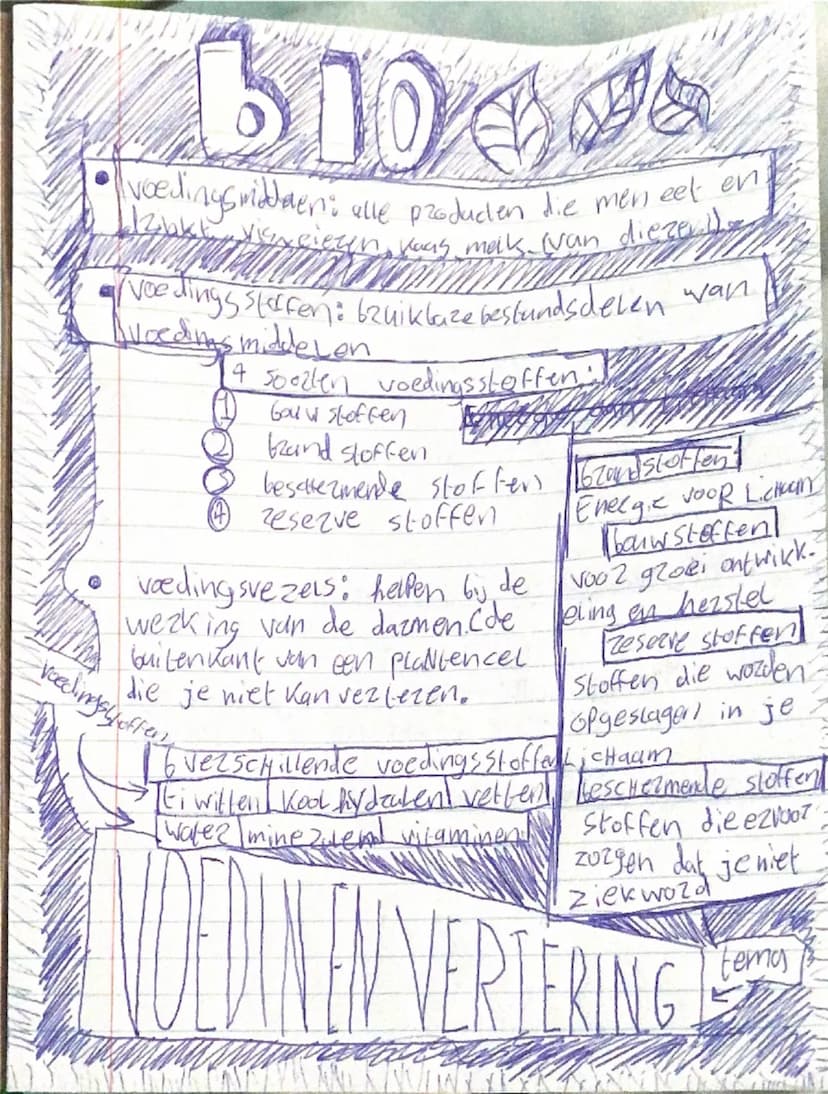 bio
• voedingsmiddelen: alle producten die men eet en
drinkt vis, kaas melk (van dieren)
• voedingsstoffen: bruikbare bestandsdelen van
voedingsmiddelen
4 soorten voedingsstoffen:
① bouwstoffen
② brandstoffen
③ beschermende stoffen
④ reserve stoffen
• voedingsvezels: helpen bij de
werking van de darmen. (de
buitenkant van een plantencel
die je niet kan verteren.
voedingsstoffen
6 verschillende voedingsstoffen
Eiwitten koolhydraten vetten
water mineralen vitaminen
brandstoffen:
Energie voor Lichaam
bouwstoffen
voor groei ontwikk-
eling en herstel
reserve stoffen
stoffen die worden
opgeslagen in je
Lichaam
beschermende stoffen
stoffen die ervoor
zorgen dat je niet
ziek word
VOEDIN EN VERTERING
tema